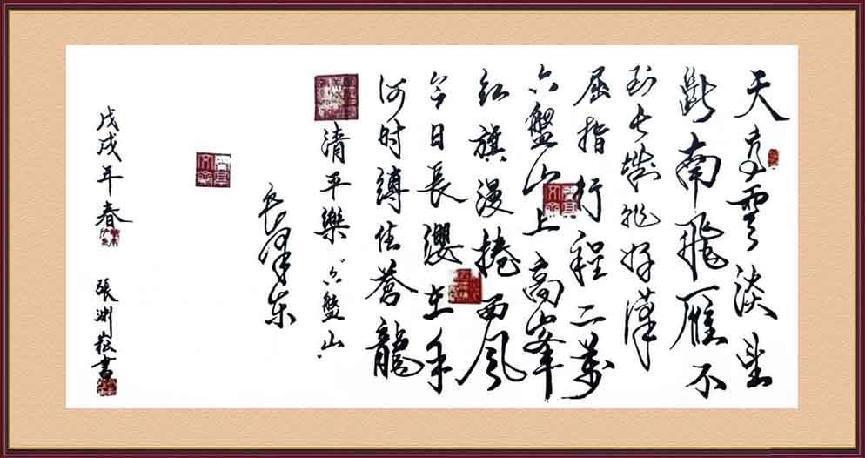 天高雲淡望
斷南飛雁不
到長城非好漢
屈指行程二萬
六盤山上高峯
紅旗漫捲西風
今日長纓在手
何時縛住蒼龍
清平樂 六盤山
毛澤東
戊戌年春 張 書